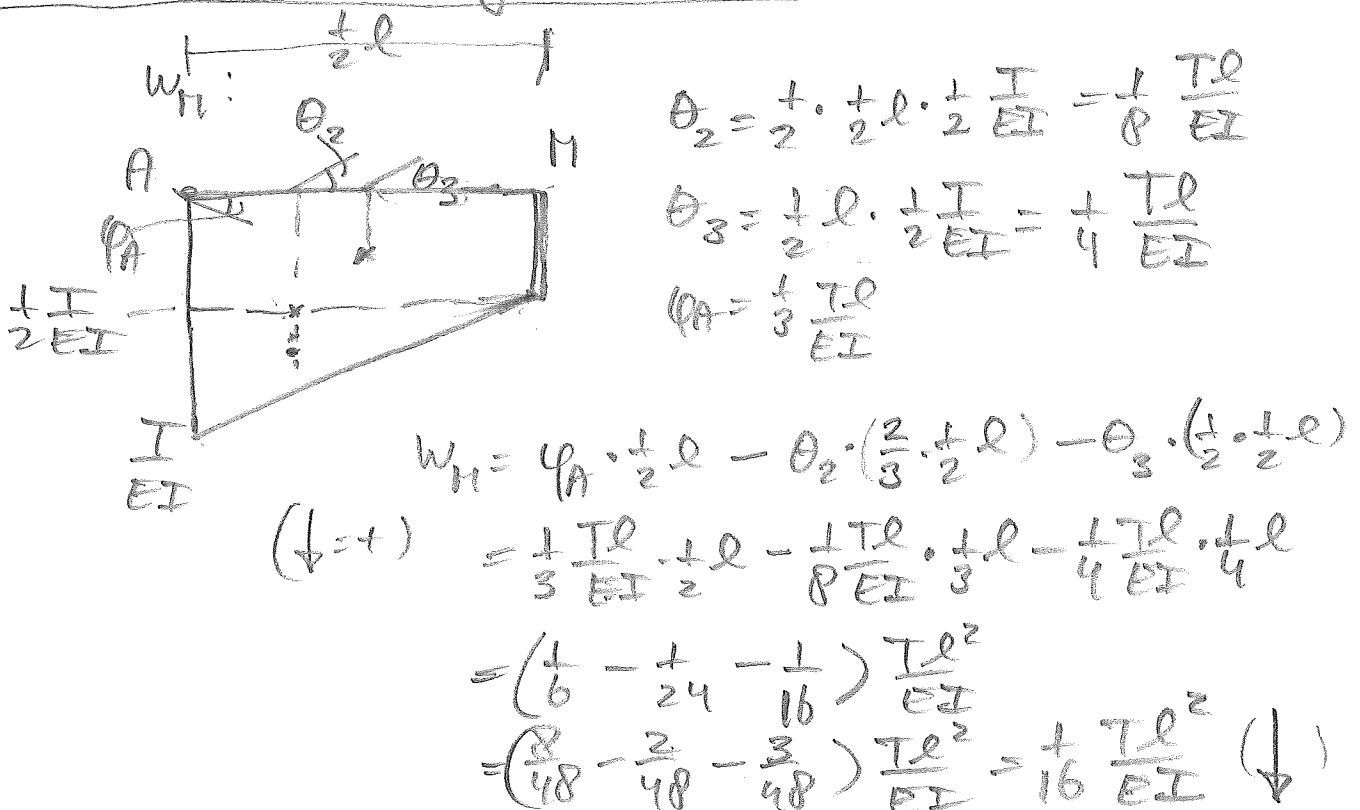 ½ ℓ
W_M :
θ₂
A
θ₃
M
φ_A
½ T/EI
T/EI
θ₂ = ½ · ½ ℓ · ½ T/EI = 1/8 Tℓ/EI
θ₃ = ½ ℓ · ½ T/EI = ¼ Tℓ/EI
φ_A = ⅓ Tℓ/EI
W_M = φ_A · ½ ℓ − θ₂ · (⅔ · ½ ℓ) − θ₃ · (½ · ½ ℓ)
(↓ = +) = ⅓ Tℓ/EI · ½ ℓ − 1/8 Tℓ/EI · ⅓ ℓ − ¼ Tℓ/EI · ¼ ℓ
= (1/6 − 1/24 − 1/16) Tℓ²/EI
= (8/48 − 2/48 − 3/48) Tℓ²/EI = 1/16 Tℓ²/EI (↓)